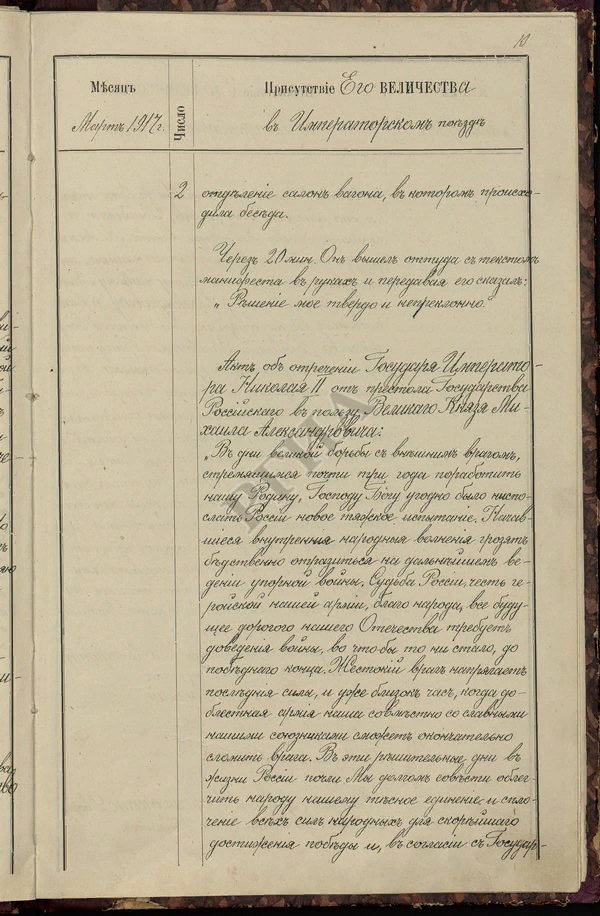 10
Мѣсяцъ
Мартъ 1917 г.
Число
Присутствіе Его ВЕЛИЧЕСТВа
въ Императорскомъ поѣздѣ
2
отдѣленіе салонъ вагона, въ которомъ происхо-
дила бесѣда.
Черезъ 20 мин. Онъ вышелъ оттуда съ текстомъ
манифеста въ рукахъ и передавая его сказалъ:
„Рѣшеніе мое твердо и непреклонно."
Актъ объ отреченіи Государя Императо-
ра Николая II отъ престола Государства
Россійскаго въ пользу Великаго Князя Ми-
хаила Александровича:
„Въ дни великой борьбы съ внѣшнимъ врагомъ,
стремящимся почти три года поработить
нашу Родину, Господу Богу угодно было ниспо-
слать Россіи новое тяжкое испытаніе. Начав-
шіеся внутреннія народныя волненія грозятъ
бѣдственно отразиться на дальнѣйшемъ ве-
деніи упорной войны. Судьба Россіи, честь ге-
ройской нашей арміи, благо народа, все буду-
щее дорогого нашего Отечества требуетъ
доведенія войны, во что-бы то ни стало, до
побѣднаго конца. Жестокій врагъ напрягаетъ
послѣднія силы, и уже близокъ часъ, когда до-
блестная армія наша совмѣстно со славными
нашими союзниками сможетъ окончательно
сломить врага. Въ эти рѣшительные дни въ
жизни Россіи почли Мы долгомъ совѣсти облег-
чить народу нашему тѣсное единеніе и спло-
ченіе всѣхъ силъ народныхъ для скорѣйшаго
достиженія побѣды и, въ согласіи съ Государ-